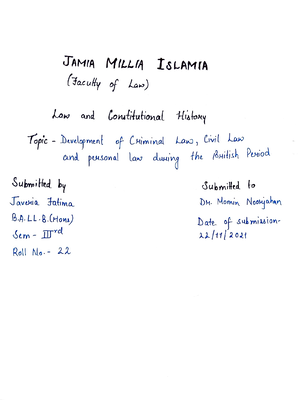 JAMIA MILLIA ISLAMIA
(Faculty of Law)
Law and Constitutional History
Topic - Development of Criminal Law, Civil Law
and personal law during the British Period
Submitted by
Javeria Fatima
B.A.LL.B.(Hons)
Sem - IIIrd
Roll No. - 22
Submitted to
Dr. Momin Noorjahan
Date of submission-
22/11/2021